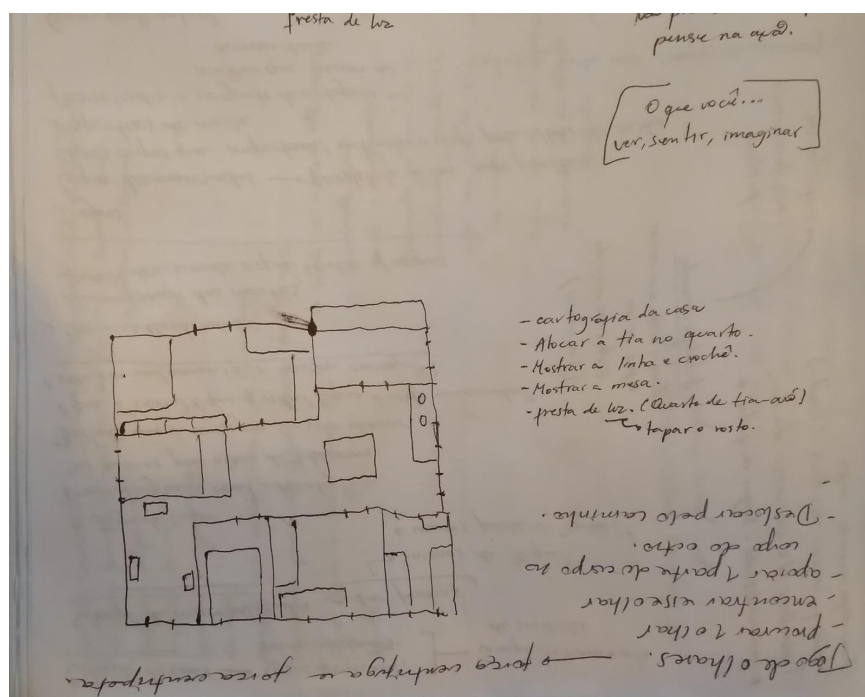 fresta de luz
pense na ação.
O que você...
ver, sentir, imaginar
- cartografia da casa
- Alocar a tia no quarto.
- Mostrar a linha e crochê.
- Mostrar a mesa.
- fresta de luz. (Quarto de tia-avó)
tapar o rosto.
Jogo de olhares. → força centrífuga e força centrípeta.
- procurar 1 olhar
- encontrar esse olhar
- apoiar 1 parte do corpo no
corpo do outro.
- Deslocar pelo caminho.
-